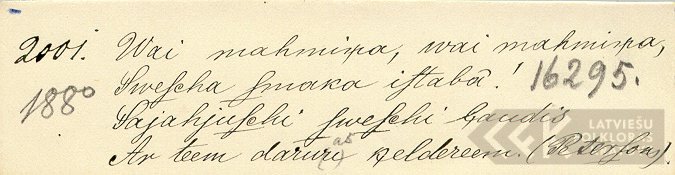 2001. Wai mahmiņa, wai mahmiņa,
1880 Sweſcha ſmaka iſtabâ! 16295.
Sajahjuſchi ſweſchi ļaudis
Ar teem daruri ab zeldereem. (Peterſons).
LATVIEŠU
FOLKLORA